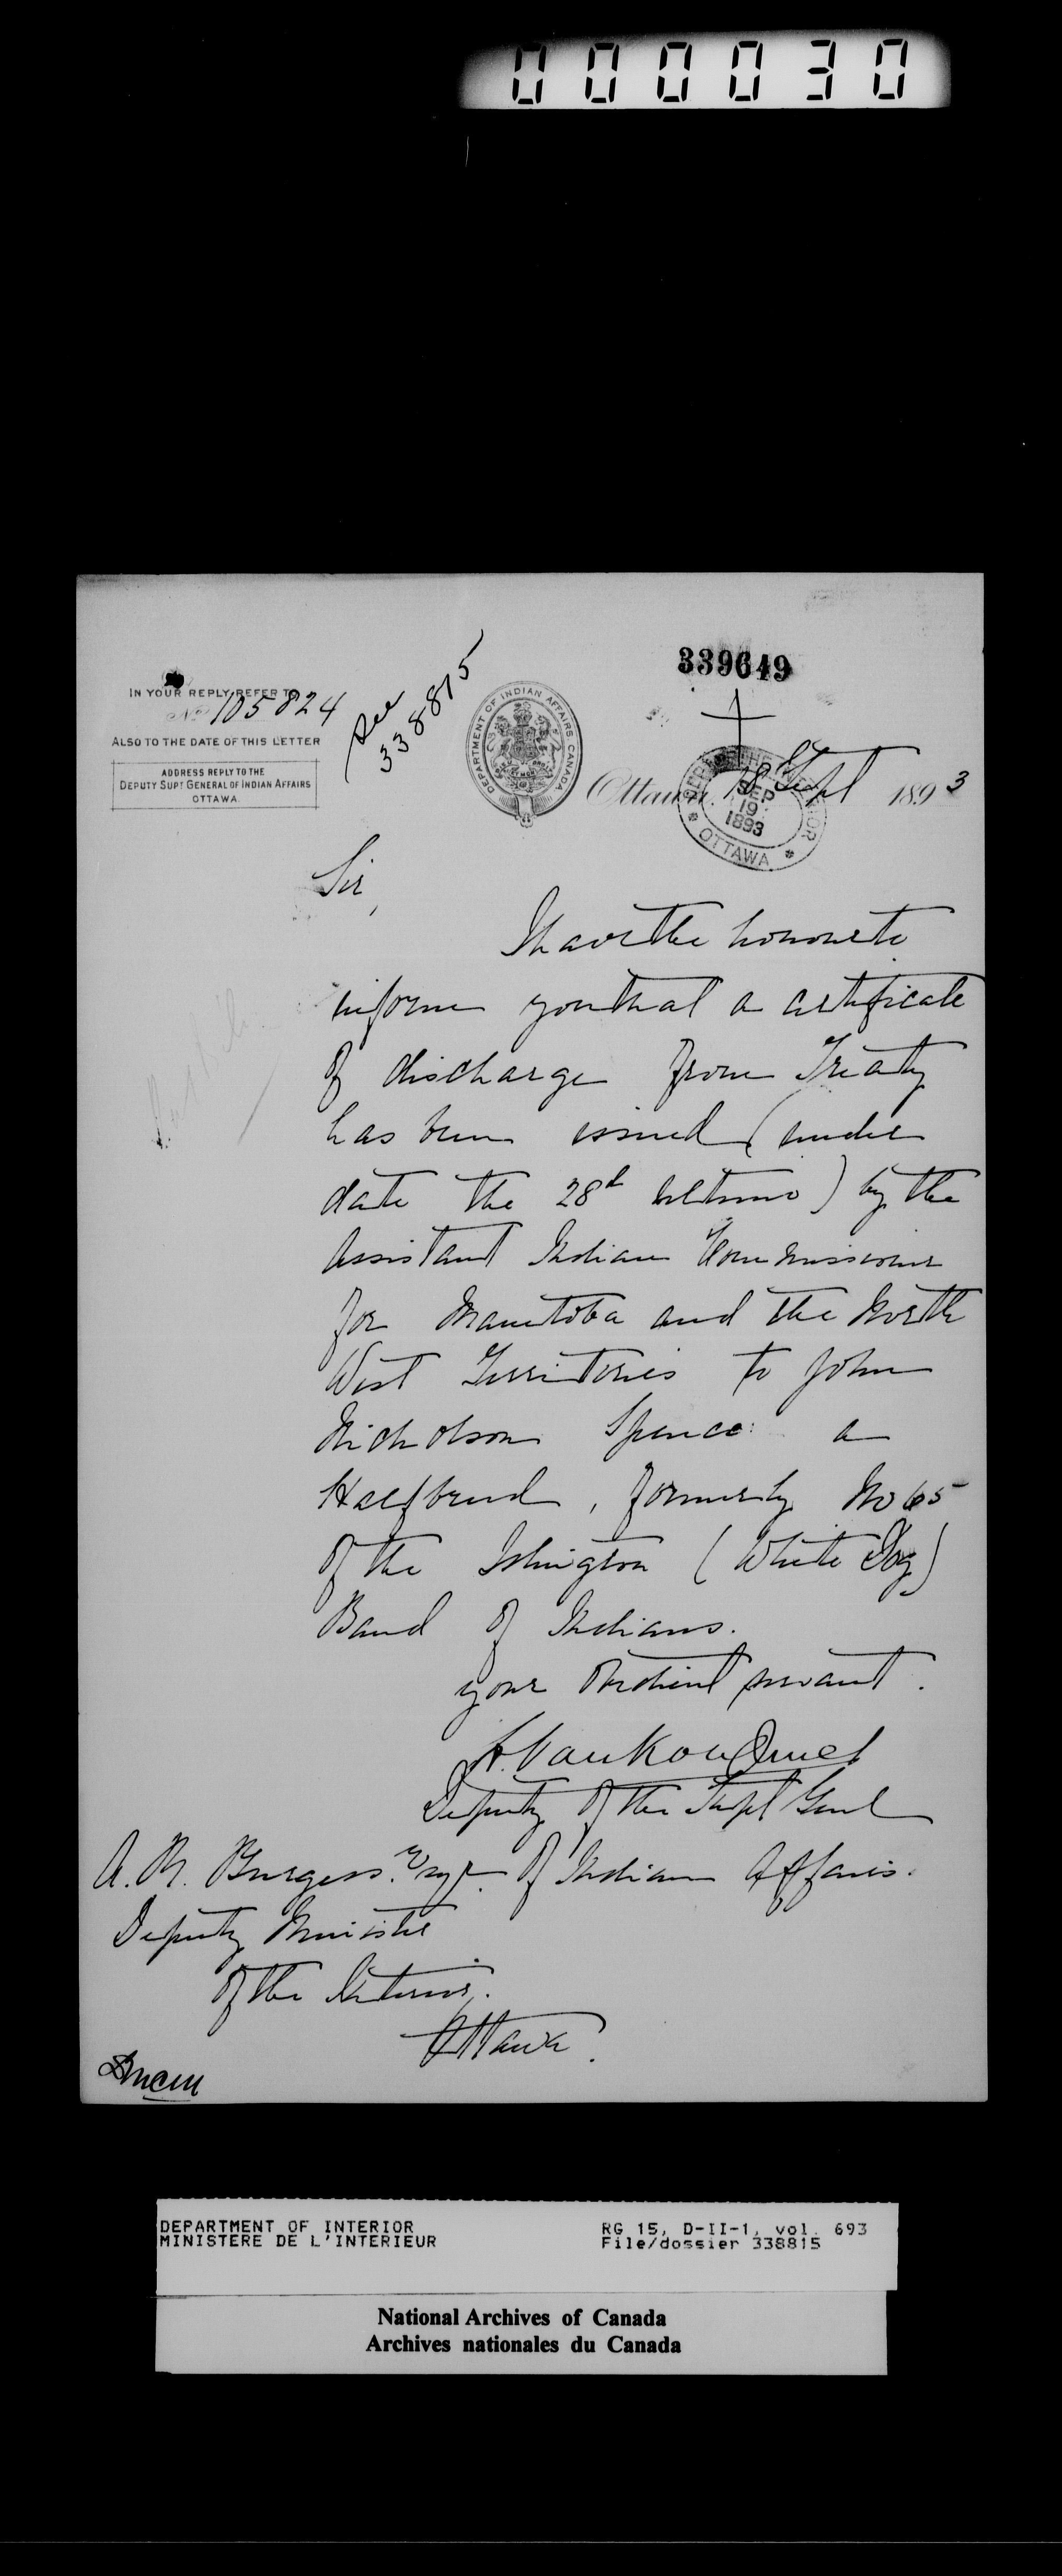 000030
339649
IN YOUR REPLY REFER TO
No 105824
ALSO TO THE DATE OF THIS LETTER
ADDRESS REPLY TO THE
DEPUTY SUPT GENERAL OF INDIAN AFFAIRS
OTTAWA.
See
338815
DEPARTMENT OF INDIAN AFFAIRS CANADA
Ottawa, 18 Sept 1893
SEP
19
1893
OTTAWA
Sir,
I have the honour to
inform you that a certificate
of discharge from Treaty
has been issued (under
date the 28th ultimo) by the
Assistant Indian Commissioner
for Manitoba and the North
West Territories to John
Nicholson Spence a
Halfbreed, formerly No 65
of the Islington (White Dog)
Band of Indians.
your obedient servant.
L. VanKoughnet
Deputy of the Supt Genl
of Indian Affairs.
A. M. Burgess. Esqr.
Deputy Minister
of the Interior,
Ottawa.
DEPARTMENT OF INTERIOR
MINISTERE DE L'INTERIEUR
RG 15, D-II-1, vol. 693
File/dossier 338815
National Archives of Canada
Archives nationales du Canada